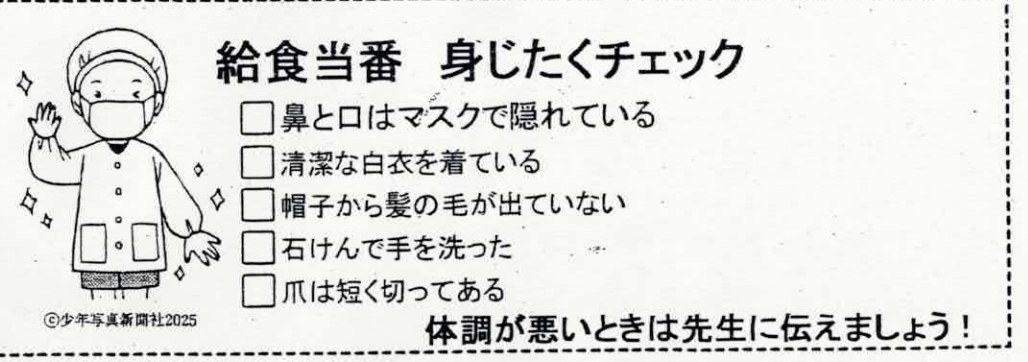 給食当番 身じたくチェック
□鼻と口はマスクで隠れている
□清潔な白衣を着ている
□帽子から髪の毛が出ていない
□石けんで手を洗った
□爪は短く切ってある
©少年写真新聞社2025
体調が悪いときは先生に伝えましょう！